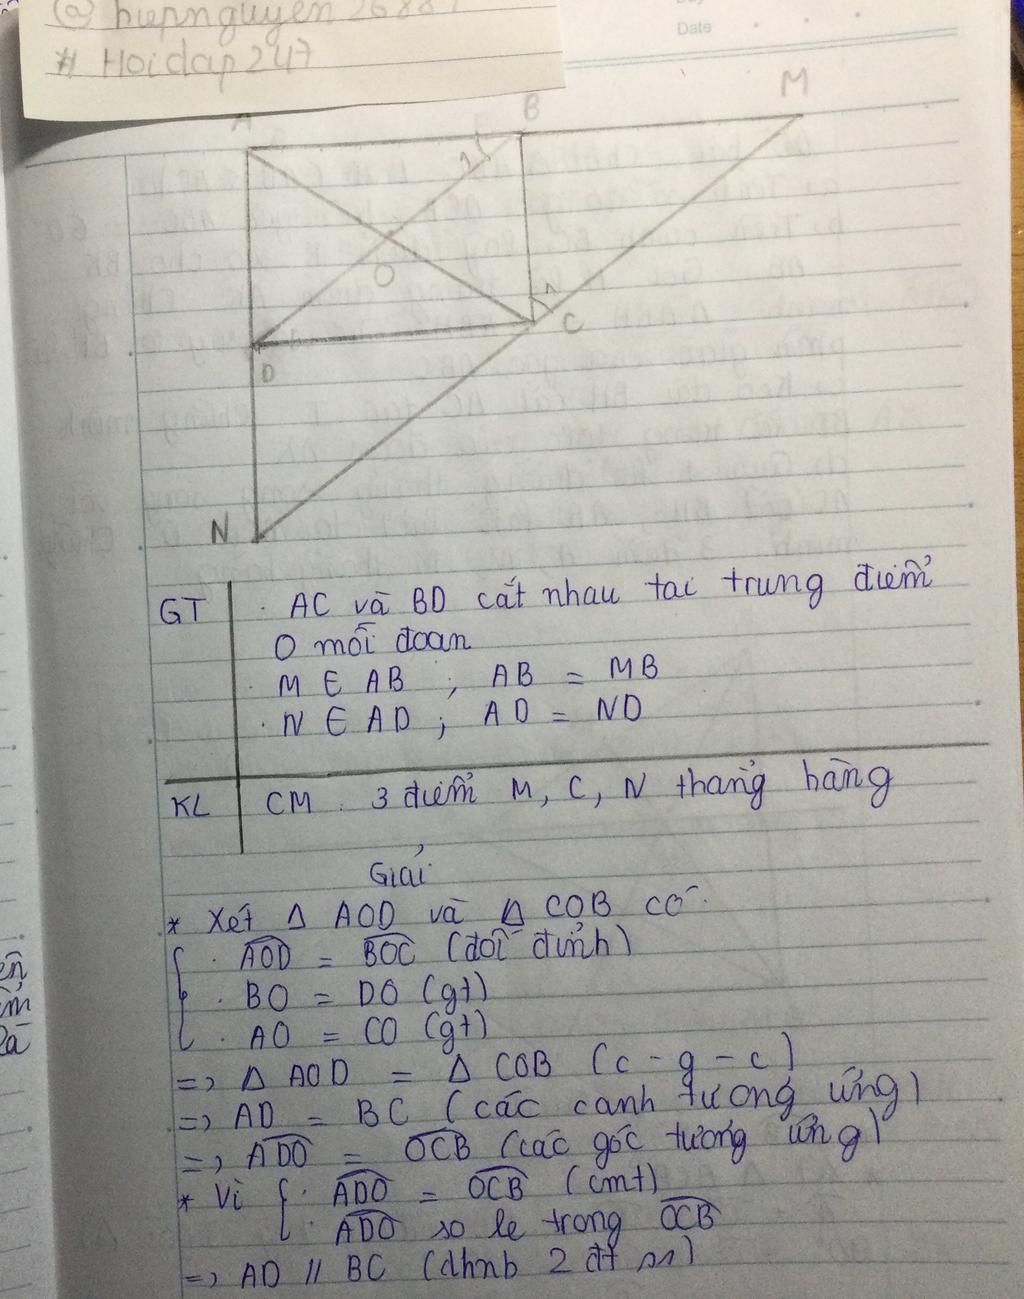 @ hiepnguyen26887
# Hoidap247
Date
A B M
O
C
D
N
GT
. AC và BD cắt nhau tại trung điểm
O mỗi đoạn
. M ∈ AB ; AB = MB
. N ∈ AD ; AD = ND
KL
CM . 3 điểm M, C, N thẳng hàng
Giải
* Xét Δ AOD và Δ COB có
. AOD = BOC (đối đỉnh)
. BO = DO (gt)
. AO = CO (gt)
=> Δ AOD = Δ COB (c - g - c)
=> AD = BC (các cạnh tương ứng)
=> ADO = OCB (các góc tương ứng)
* Vì { . ADO = OCB (cmt)
. ADO so le trong OCB
=> AD // BC (dhnb 2 đt ss)